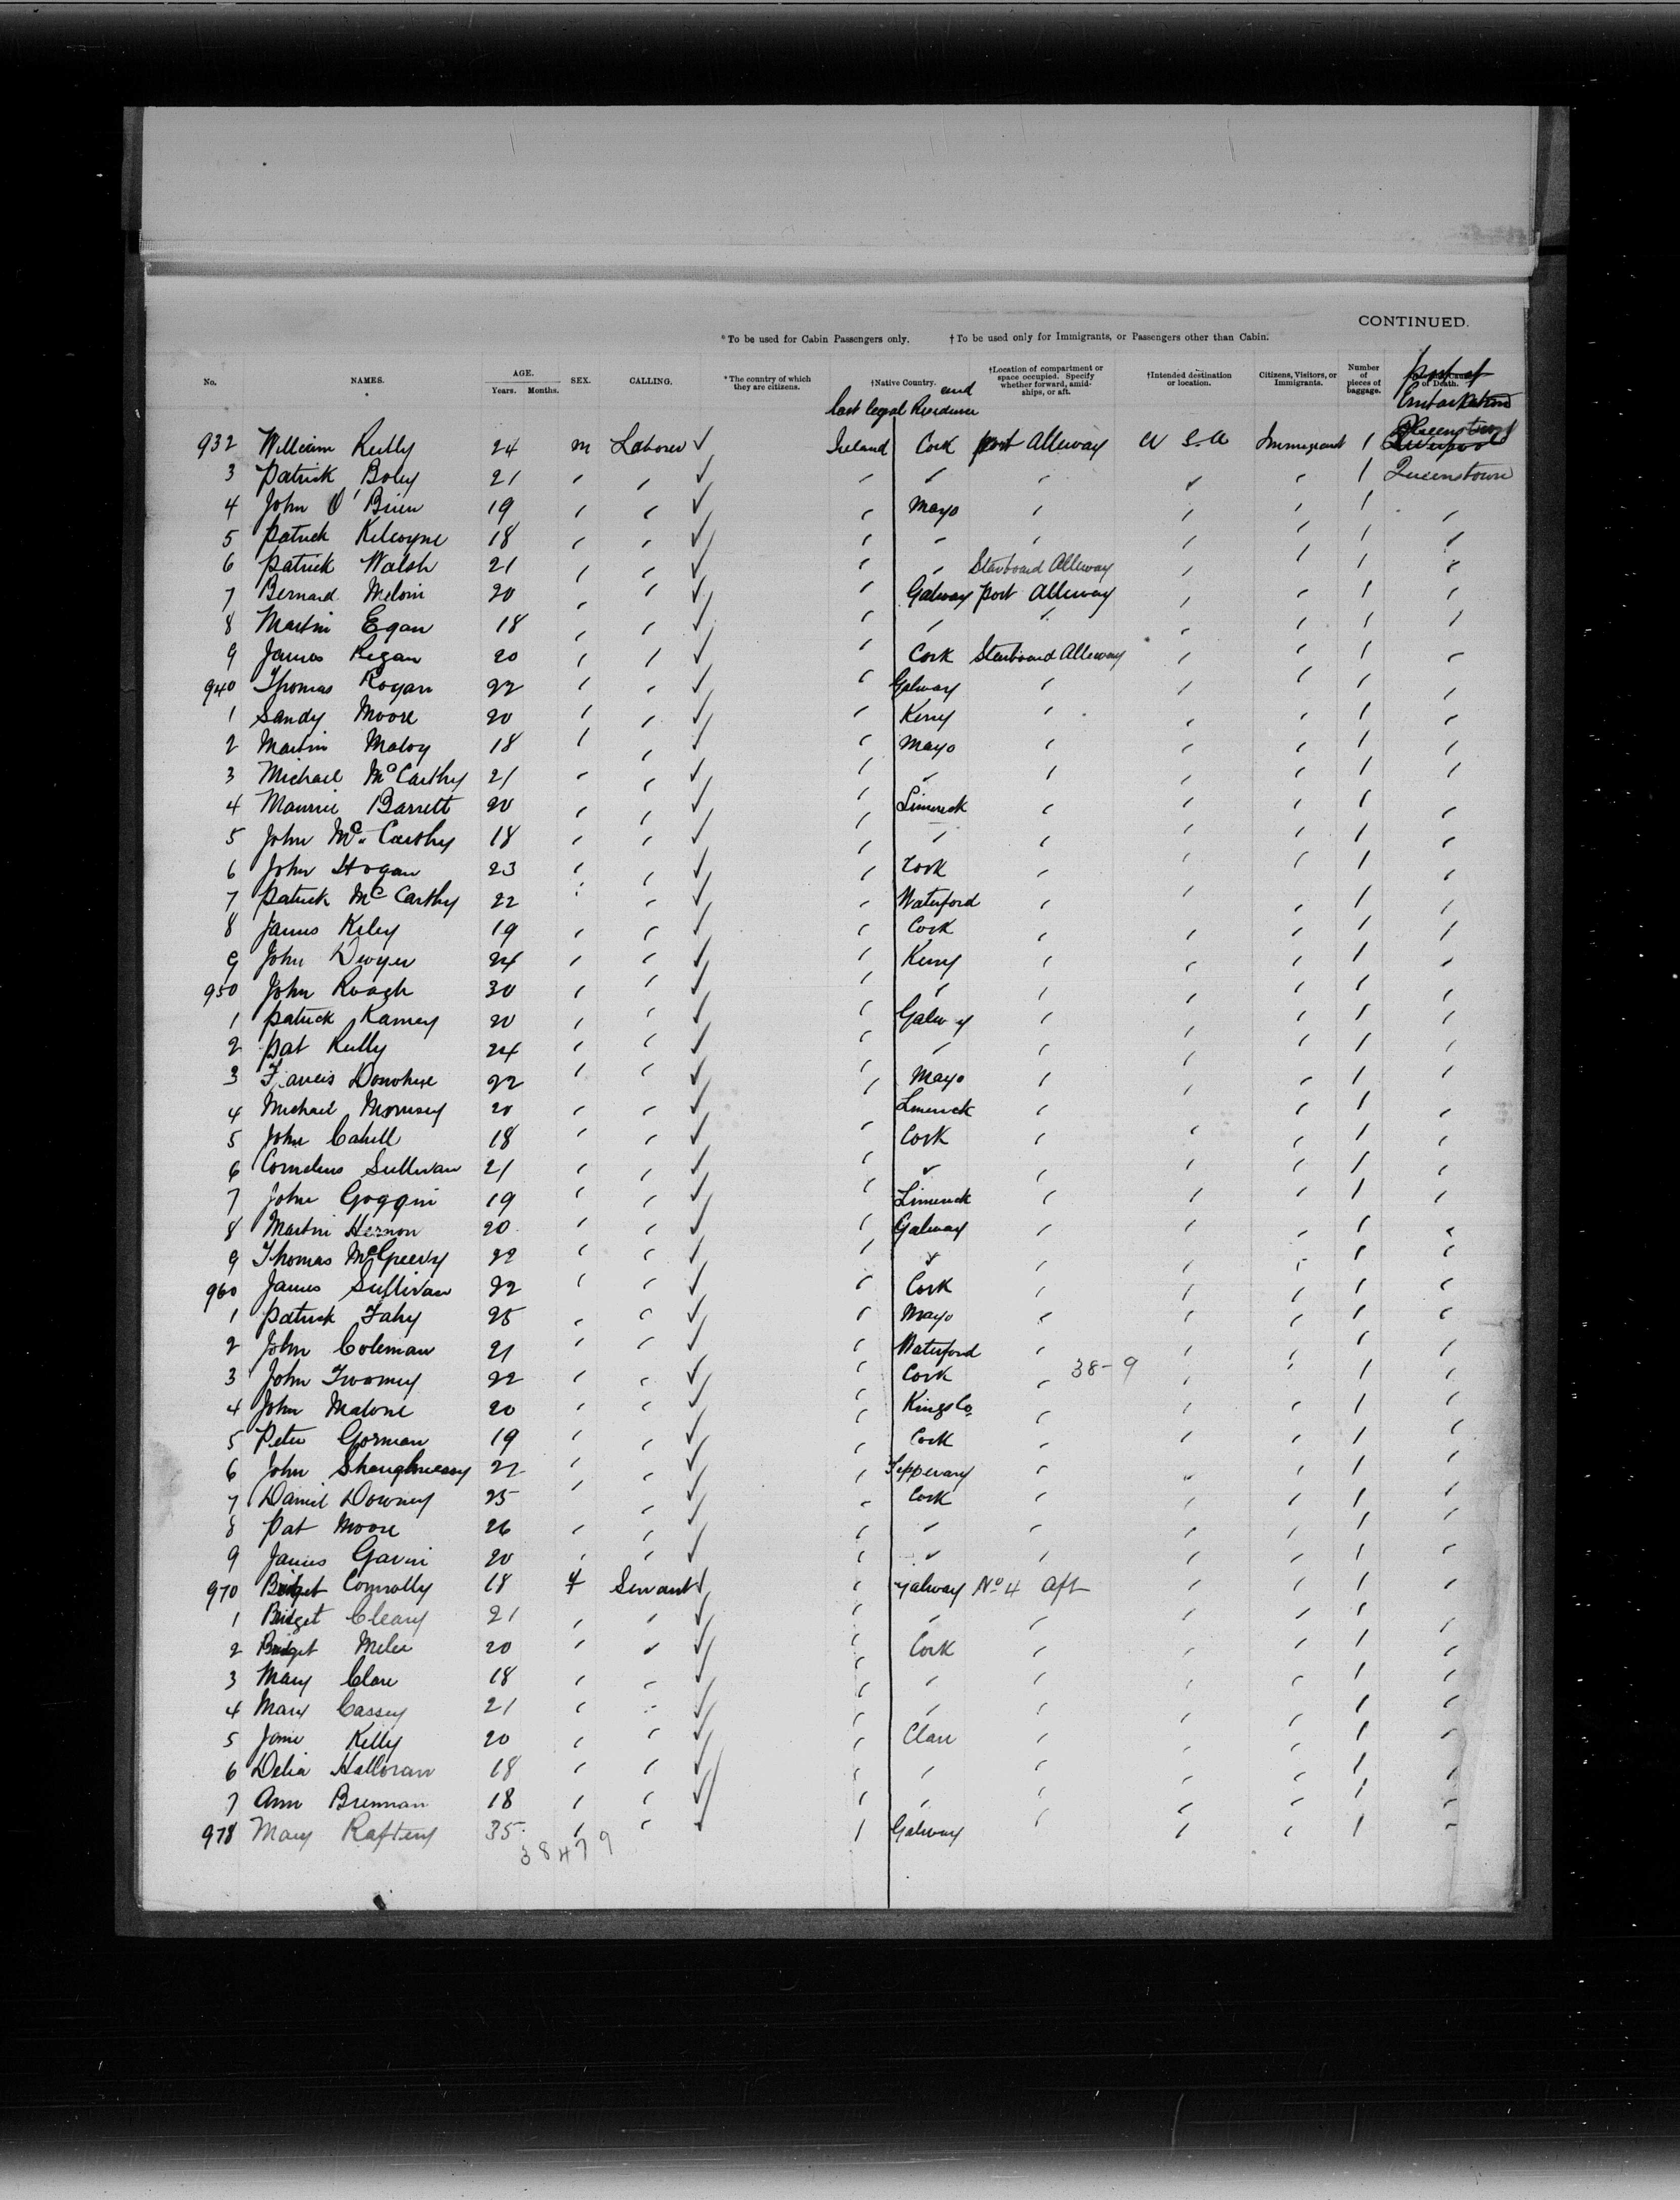 CONTINUED.
*To be used for Cabin Passengers only. †To be used only for Immigrants, or Passengers other than Cabin.
No. NAMES. AGE. Years. Months. SEX. CALLING. *The country of which they are citizens. †Native Country. and last legal Residence †Location of compartment or space occupied. Specify whether forward, amid-ships, or aft. †Intended destination or location. Citizens, Visitors, or Immigrants. Number of pieces of baggage. of Death. Port of Embarkation
932 William Reilly 24 m Laborer ✓ Ireland Cork port Alleway U S A Immigrant 1 Queenstown
3 Patrick 21 " " ✓ " " " " " 1 Queenstown
4 John O'Brien 19 " " ✓ " Mayo " " " 1 "
5 Patrick Kilcoyne 18 " " ✓ " " " " " 1 "
6 Patrick Walsh 21 " " ✓ " " Starboard Alleway " " 1 "
7 Bernard Melvin 20 " " ✓ " Galway port Alleway " " 1 "
8 Martin Egan 18 " " ✓ " " " " " 1 "
9 James Regan 20 " " ✓ " Cork Starboard Alleway " " 1 "
940 Thomas Rogan 22 " " ✓ " Galway " " " 1 "
1 Sandy Moore 20 " " ✓ " Kerry " " " 1 "
2 Martin Maloy 18 " " ✓ " Mayo " " " 1 "
3 Michael McCarthy 21 " " ✓ " " " " " 1 "
4 Maurice Barrett 20 " " ✓ " Limerick " " " 1 "
5 John McCarthy 18 " " ✓ " " " " " 1 "
6 John Hogan 23 " " ✓ " Cork " " " 1 "
7 Patrick McCarthy 22 " " ✓ " Waterford " " " 1 "
8 James Kiley 19 " " ✓ " Cork " " " 1 "
9 John Dwyer 24 " " ✓ " Kerry " " " 1 "
950 John Roach 30 " " ✓ " " " " " 1 "
1 Patrick Kamey 20 " " ✓ " Galway " " " 1 "
2 Pat Kelly 24 " " ✓ " " " " " 1 "
3 Francis Donohue 22 " " ✓ " Mayo " " " 1 "
4 Michael Morrisey 20 " " ✓ " Limerick " " " 1 "
5 John Cahill 18 " " ✓ " Cork " " " 1 "
6 Cornelius Sullivan 21 " " ✓ " " " " " 1 "
7 John Goggin 19 " " ✓ " Limerick " " " 1 "
8 Martin Hernon 20 " " ✓ " Galway " " " 1 "
9 Thomas McGreevy 22 " " ✓ " " " " " 1 "
960 James Sullivan 22 " " ✓ " Cork " " " 1 "
1 Patrick Fahy 25 " " ✓ " Mayo " " " 1 "
2 John Coleman 21 " " ✓ " Waterford " " " 1 "
3 John Twomey 22 " " ✓ " Cork " 38-9 " " 1 "
4 John Malone 20 " " ✓ " Kings Co. " " " 1 "
5 Peter Gorman 19 " " ✓ " Cork " " " 1 "
6 John Shaughnessy 22 " " ✓ " Tipperary " " " 1 "
7 Daniel Downey 25 " " ✓ " Cork " " " 1 "
8 Pat Moore 26 " " ✓ " " " " " 1 "
9 James Gavin 20 " " ✓ " " " " " 1 "
970 Bridget Connolly 18 f Servant ✓ " Galway No 4 aft " " 1 "
1 Bridget Cleary 21 " " ✓ " " " " " 1 "
2 Bridget 20 " " ✓ " Cork " " " 1 "
3 Mary Clare 18 " " ✓ " " " " " 1 "
4 Mary Cassey 21 " " ✓ " " " " " 1 "
5 Jane Kelly 20 " " ✓ " Clare " " " 1 "
6 Delia Halloran 18 " " ✓ " " " " " 1 "
7 Ann Brennan 18 " " ✓ " " " " " 1 "
978 Mary Raftery 35 " " ✓ " Galway " " " 1 "
38479